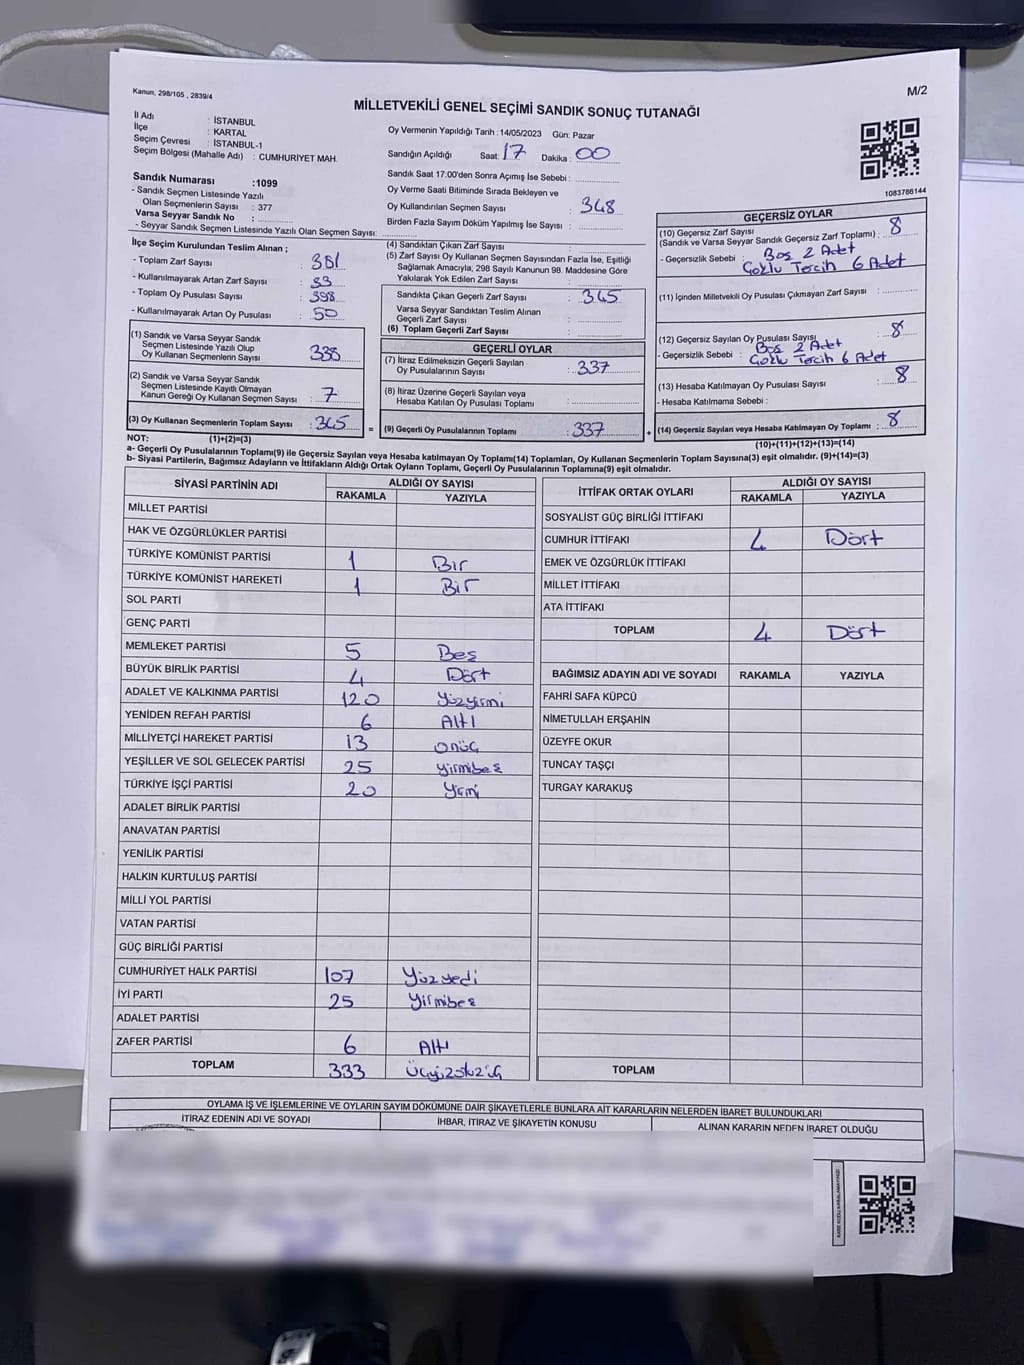 Kanun, 298/105 , 2839/4
M/2
MİLLETVEKİLİ GENEL SEÇİMİ SANDIK SONUÇ TUTANAĞI
İl Adı : İSTANBUL
İlçe : KARTAL
Seçim Çevresi : İSTANBUL-1
Seçim Bölgesi (Mahalle Adı) : CUMHURİYET MAH.
Sandık Numarası :1099
- Sandık Seçmen Listesinde Yazılı
Olan Seçmenlerin Sayısı : 377
Varsa Seyyar Sandık No :
- Seyyar Sandık Seçmen Listesinde Yazılı Olan Seçmen Sayısı:
Oy Vermenin Yapıldığı Tarih :14/05/2023 Gün: Pazar
Sandığın Açıldığı Saat: 17 Dakika : 00
Sandık Saat 17:00'den Sonra Açımış İse Sebebi :
Oy Verme Saati Bitiminde Sırada Bekleyen ve
Oy Kullandırılan Seçmen Sayısı : 348
Birden Fazla Sayım Döküm Yapılmış İse Sayısı :
1083786144
İlçe Seçim Kurulundan Teslim Alınan ;
- Toplam Zarf Sayısı : 381
- Kullanılmayarak Artan Zarf Sayısı : 33
- Toplam Oy Pusulası Sayısı : 398
- Kullanılmayarak Artan Oy Pusulası : 50
(1) Sandık ve Varsa Seyyar Sandık
Seçmen Listesinde Yazılı Olup
Oy Kullanan Seçmenlerin Sayısı : 338
(2) Sandık ve Varsa Seyyar Sandık
Seçmen Listesinde Kayıtlı Olmayan
Kanun Gereği Oy Kullanan Seçmen Sayısı : 7
(3) Oy Kullanan Seçmenlerin Toplam Sayısı : 345
(4) Sandıktan Çıkan Zarf Sayısı :
(5) Zarf Sayısı Oy Kullanan Seçmen Sayısından Fazla İse, Eşitliği
Sağlamak Amacıyla; 298 Sayılı Kanunun 98. Maddesine Göre
Yakılarak Yok Edilen Zarf Sayısı :
Sandıkta Çıkan Geçerli Zarf Sayısı : 345
Varsa Seyyar Sandıktan Teslim Alınan
Geçerli Zarf Sayısı :
(6) Toplam Geçerli Zarf Sayısı :
GEÇERLİ OYLAR
(7) İtiraz Edilmeksizin Geçerli Sayılan
Oy Pusulalarının Sayısı : 337
(8) İtiraz Üzerine Geçerli Sayılan veya
Hesaba Katılan Oy Pusulası Toplamı :
= (9) Geçerli Oy Pusulalarının Toplamı : 337
GEÇERSİZ OYLAR
(10) Geçersiz Zarf Sayısı : 8
(Sandık ve Varsa Seyyar Sandık Geçersiz Zarf Toplamı)
- Geçersizlik Sebebi : Boş 2 Adet
Çoklu Tercih 6 Adet
(11) İçinden Milletvekili Oy Pusulası Çıkmayan Zarf Sayısı :
(12) Geçersiz Sayılan Oy Pusulası Sayısı : 8
- Geçersizlik Sebebi : Boş 2 Adet
Çoklu Tercih 6 Adet
(13) Hesaba Katılmayan Oy Pusulası Sayısı : 8
- Hesaba Katılmama Sebebi :
+ (14) Geçersiz Sayılan veya Hesaba Katılmayan Oy Toplamı : 8
NOT: (1)+(2)=(3)
(10)+(11)+(12)+(13)=(14)
a- Geçerli Oy Pusulalarının Toplamı(9) ile Geçersiz Sayılan veya Hesaba katılmayan Oy Toplamı(14) Toplamları, Oy Kullanan Seçmenlerin Toplam Sayısına(3) eşit olmalıdır. (9)+(14)=(3)
b- Siyasi Partilerin, Bağımsız Adayların ve İttifakların Aldığı Ortak Oyların Toplamı, Geçerli Oy Pusulalarının Toplamına(9) eşit olmalıdır.
SİYASİ PARTİNİN ADI ALDIĞI OY SAYISI
RAKAMLA YAZIYLA
MİLLET PARTİSİ
HAK VE ÖZGÜRLÜKLER PARTİSİ
TÜRKİYE KOMÜNİST PARTİSİ 1 Bir
TÜRKİYE KOMÜNİST HAREKETİ 1 Bir
SOL PARTİ
GENÇ PARTİ
MEMLEKET PARTİSİ 5 Beş
BÜYÜK BİRLİK PARTİSİ 4 Dört
ADALET VE KALKINMA PARTİSİ 120 Yüzyirmi
YENİDEN REFAH PARTİSİ 6 Altı
MİLLİYETÇİ HAREKET PARTİSİ 13 onüç
YEŞİLLER VE SOL GELECEK PARTİSİ 25 yirmibeş
TÜRKİYE İŞÇİ PARTİSİ 20 Yirmi
ADALET BİRLİK PARTİSİ
ANAVATAN PARTİSİ
YENİLİK PARTİSİ
HALKIN KURTULUŞ PARTİSİ
MİLLİ YOL PARTİSİ
VATAN PARTİSİ
GÜÇ BİRLİĞİ PARTİSİ
CUMHURİYET HALK PARTİSİ 107 Yüzyedi
İYİ PARTİ 25 Yirmibeş
ADALET PARTİSİ
ZAFER PARTİSİ 6 Altı
TOPLAM 333
İTTİFAK ORTAK OYLARI ALDIĞI OY SAYISI
RAKAMLA YAZIYLA
SOSYALİST GÜÇ BİRLİĞİ İTTİFAKI
CUMHUR İTTİFAKI 4 Dört
EMEK VE ÖZGÜRLÜK İTTİFAKI
MİLLET İTTİFAKI
ATA İTTİFAKI
TOPLAM 4 Dört
BAĞIMSIZ ADAYIN ADI VE SOYADI RAKAMLA YAZIYLA
FAHRİ SAFA KÜPCÜ
NİMETULLAH ERŞAHİN
ÜZEYFE OKUR
TUNCAY TAŞÇI
TURGAY KARAKUŞ
TOPLAM
OYLAMA İŞ VE İŞLEMLERİNE VE OYLARIN SAYIM DÖKÜMÜNE DAİR ŞİKAYETLERLE BUNLARA AİT KARARLARIN NELERDEN İBARET BULUNDUKLARI
İTİRAZ EDENİN ADI VE SOYADI İHBAR, İTİRAZ VE ŞİKAYETİN KONUSU ALINAN KARARIN NEDEN İBARET OLDUĞU